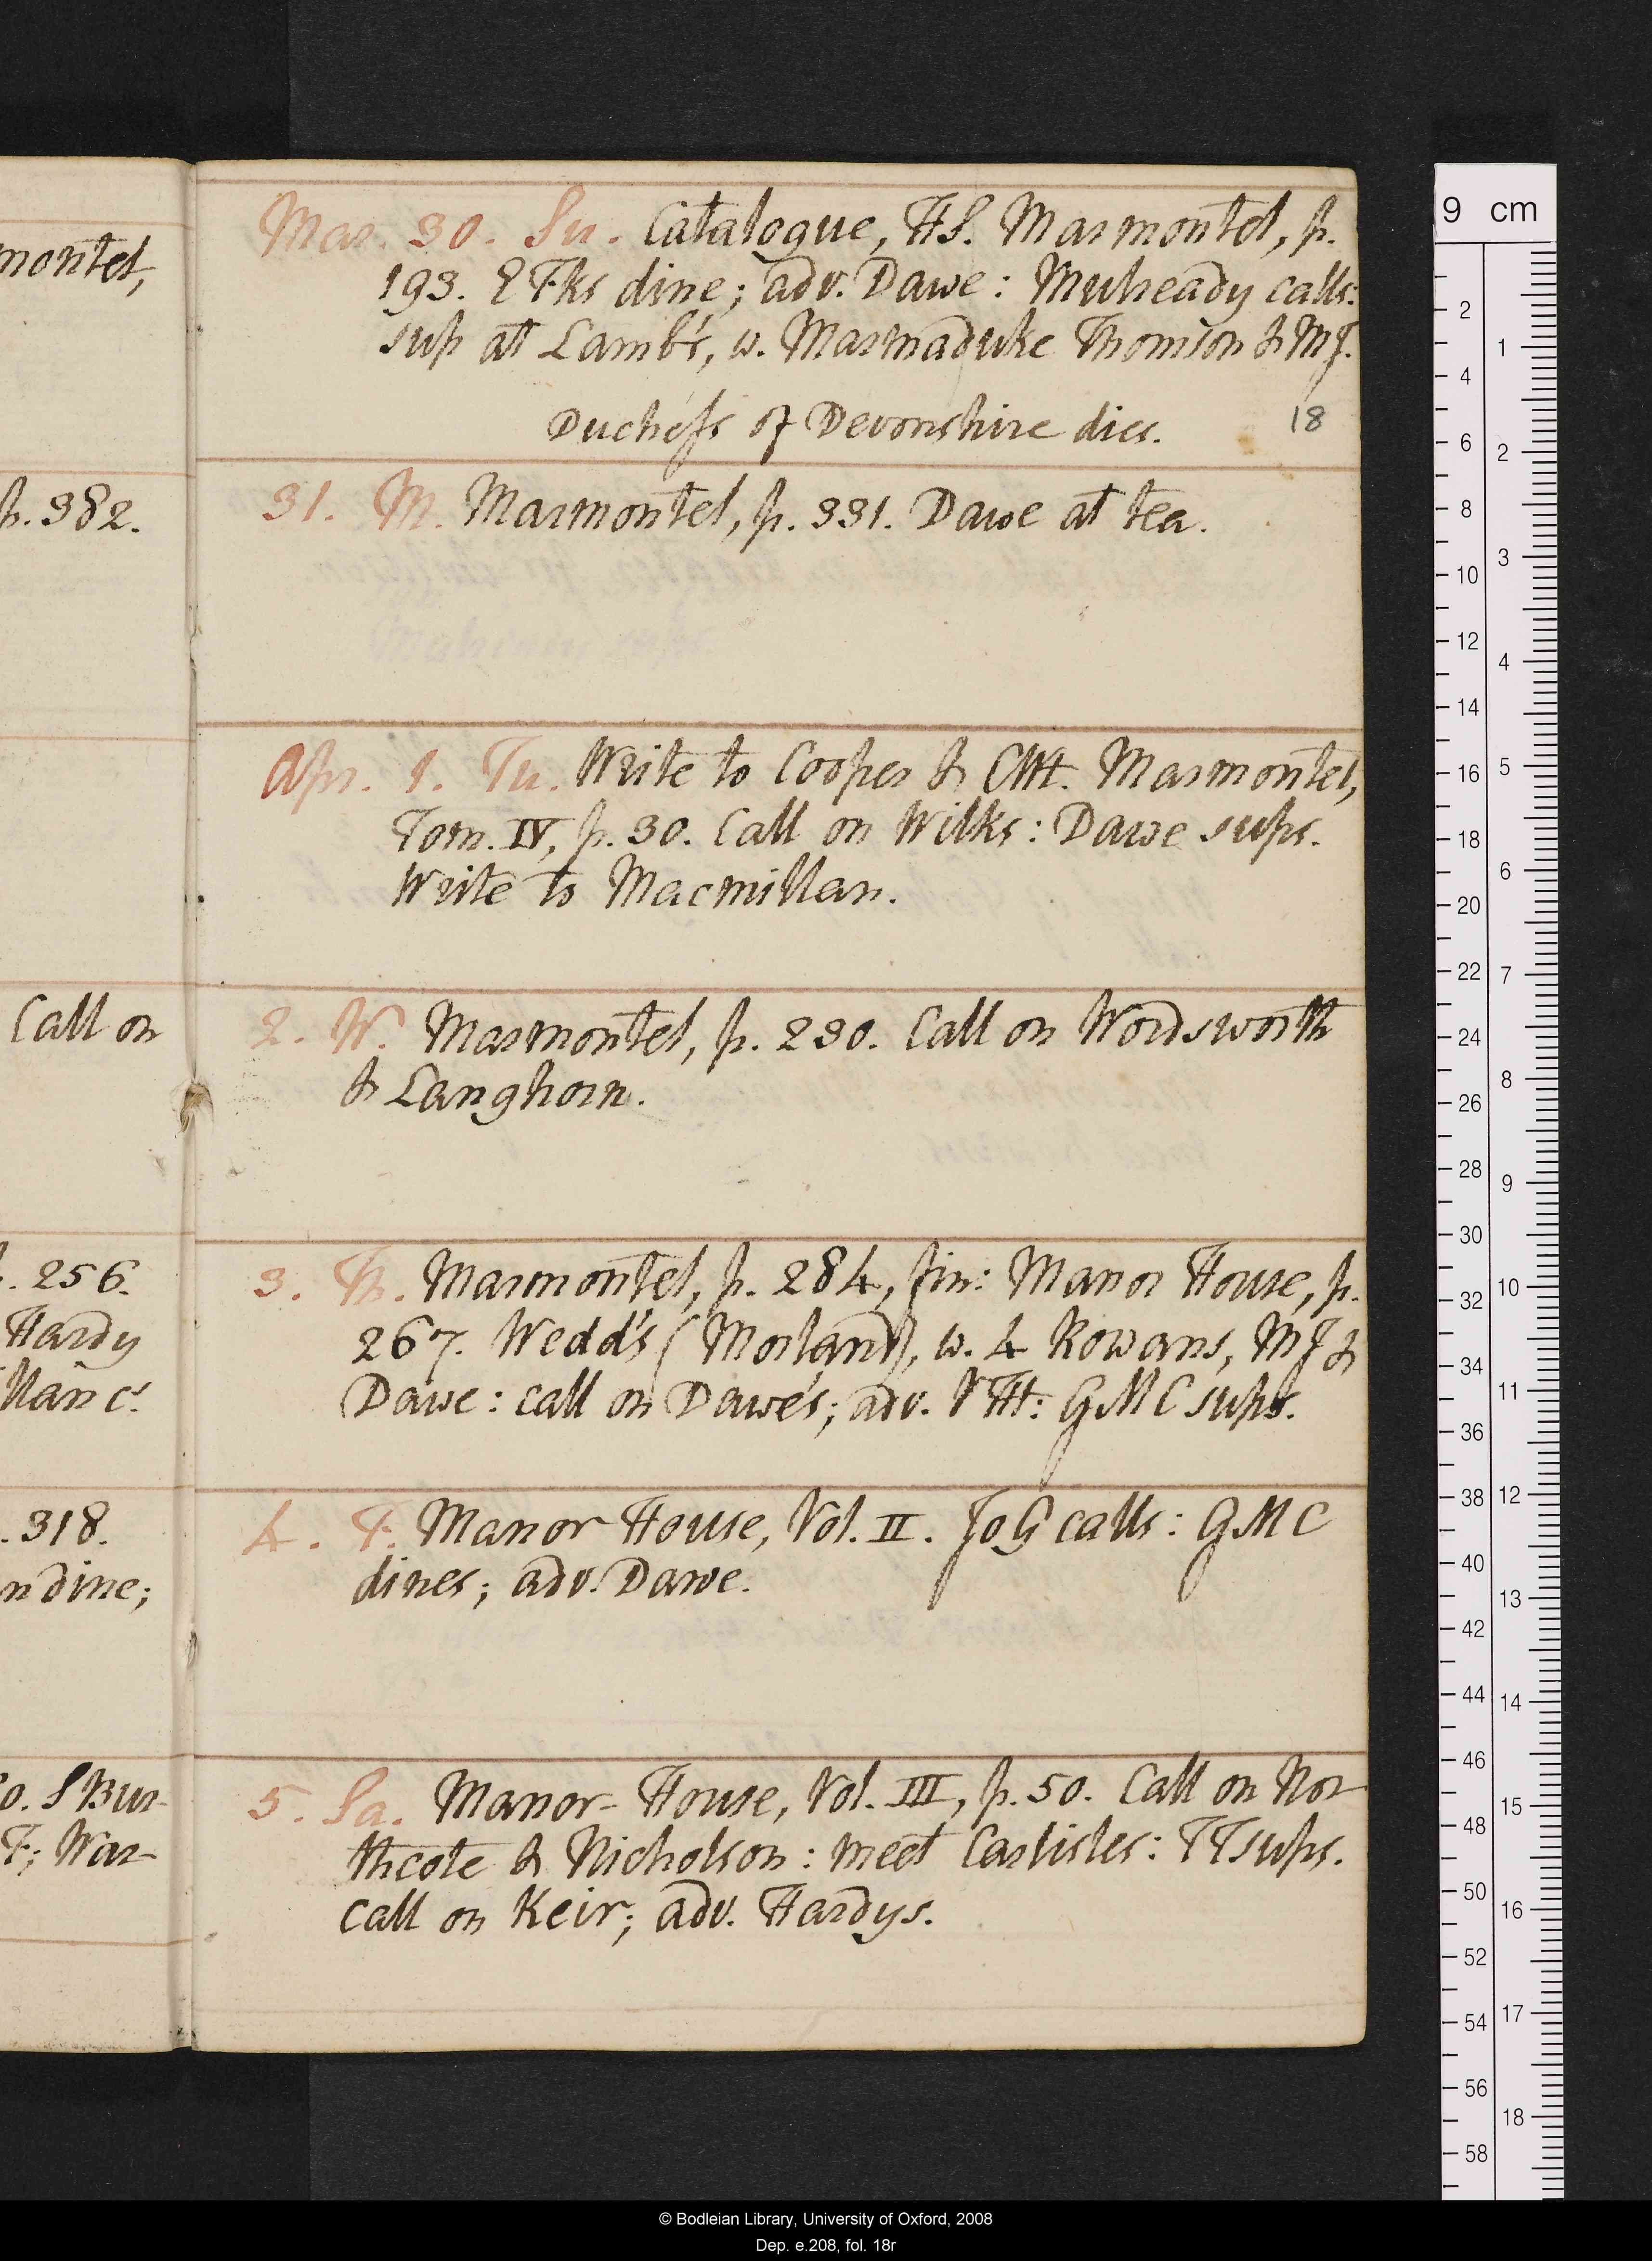 montel,
p. 382.
Call on
. 256.
Hardy
llan cs
. 318.
n dine;
o. S Bur-
F; War-
Mar. 30. Su. Catalogue, HS. Marmontel, p.
193. E Fks dine; adv. Dawe: Mulready calls:
sup at Lamb's, w. Marmaduke Thomson & MJ.
Duchess of Devonshire dies.
18
31. M. Marmontel, p. 331. Dawe at tea.
Apr. 1. Tu. Write to Cooper & Cht. Marmontel,
Tom. IV, p. 30. Call on Wilks: Dawe sups.
Write to Macmillan.
2. W. Marmontel, p. 230. Call on Wordsworth
& Langhorn.
3. Th. Marmontel, p. 284, fin: Manor House, p.
267. Wedd's (Morland), w. 4 Rowans, MJ &
Dawe: call on Dawe's; adv. VHt: GMC sups.
4. F. Manor House, Vol. II. JoG calls: GMC
dines; adv. Dawe.
5. Sa. Manor-House, Vol. III, p. 50. Call on Nor
thcote & Nicholson: meet Carlisles: TT sups.
call on Keir; adv. Hardys.
9 cm
2
4
6
8
10
12
14
16
18
20
22
24
26
28
30
32
34
36
38
40
42
44
46
48
50
52
54
56
58
1
2
3
4
5
6
7
8
9
10
11
12
13
14
15
16
17
18
© Bodleian Library, University of Oxford, 2008
Dep. e.208, fol. 18r